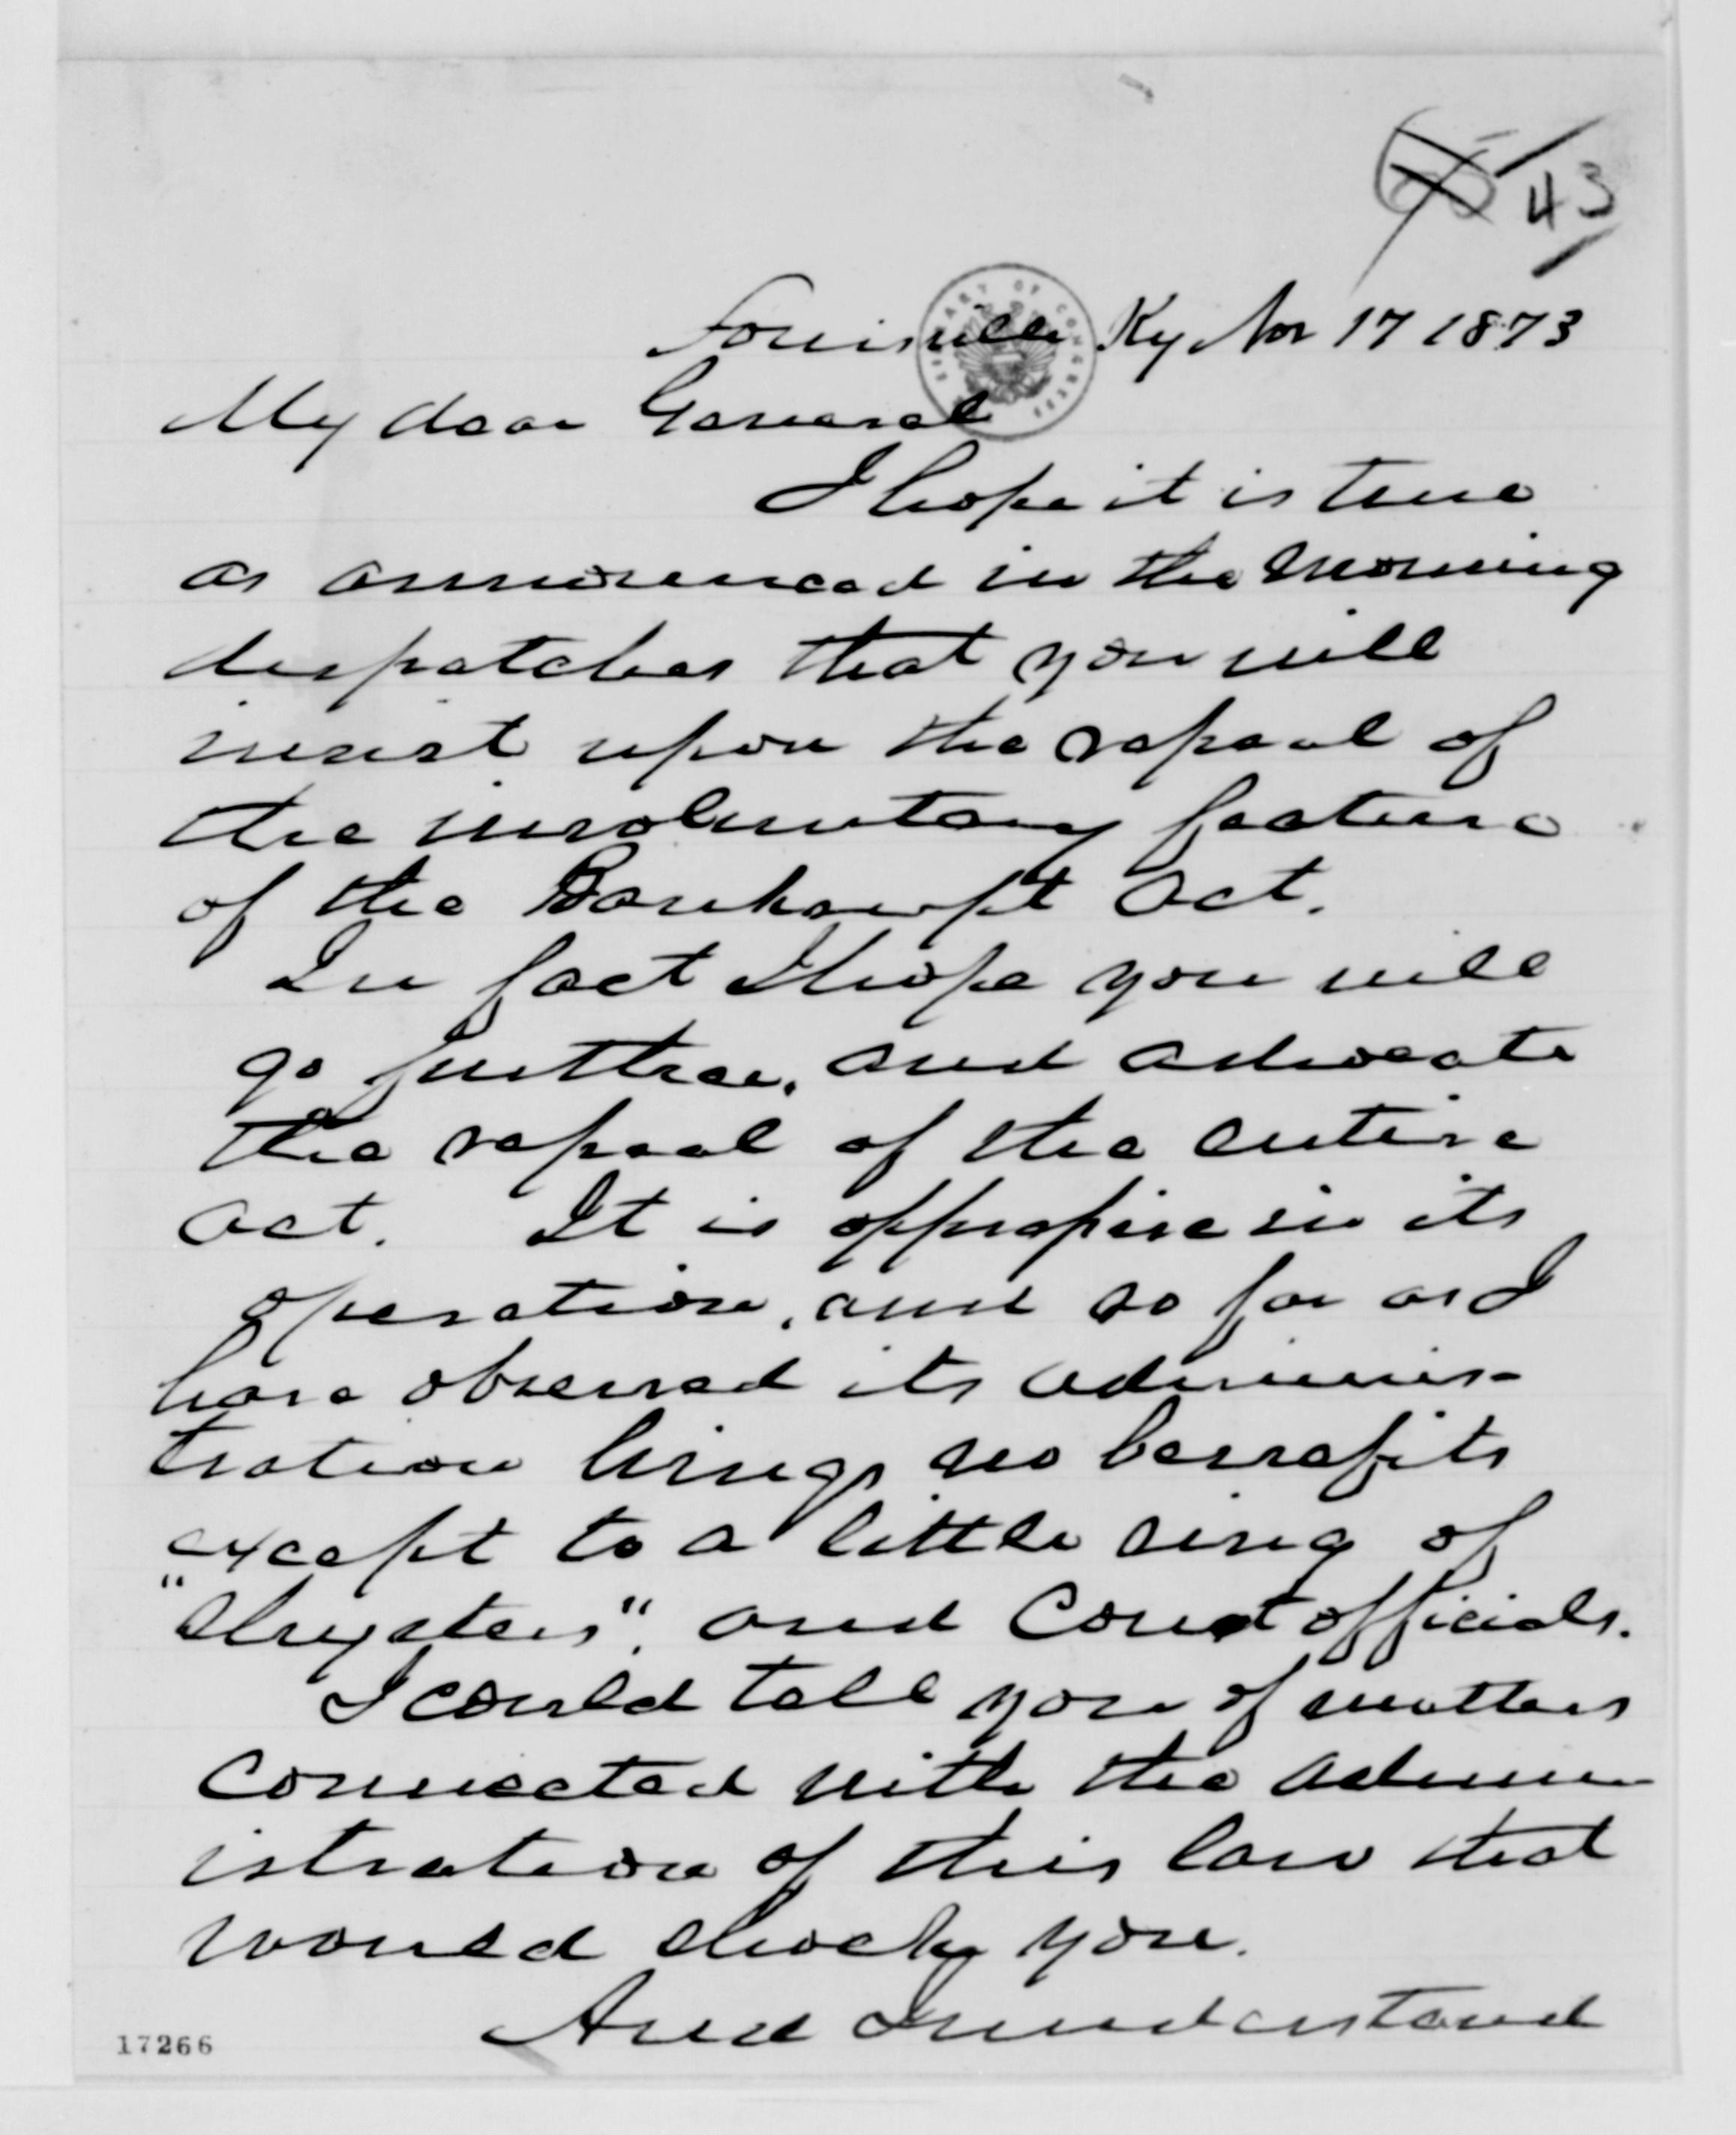 43
Louisville Ky Nov 17 1873
LIBRARY OF CONGRESS
My dear General
I hope it is true
as announced in the morning
despatches that you will
insist upon the repeal of
the involuntary feature
of the Bankrupt Act.
In fact I hope you will
go further, and advocate
the repeal of the entire
Act. It is in its
operation, and so far as I
have observed its adminis-
tration brings no benefits
except to a little ring of
"Shysters", and Court officials.
I could tell you of matters
connected with the admin-
istration of this law that
would shock you.
And I understand
17266